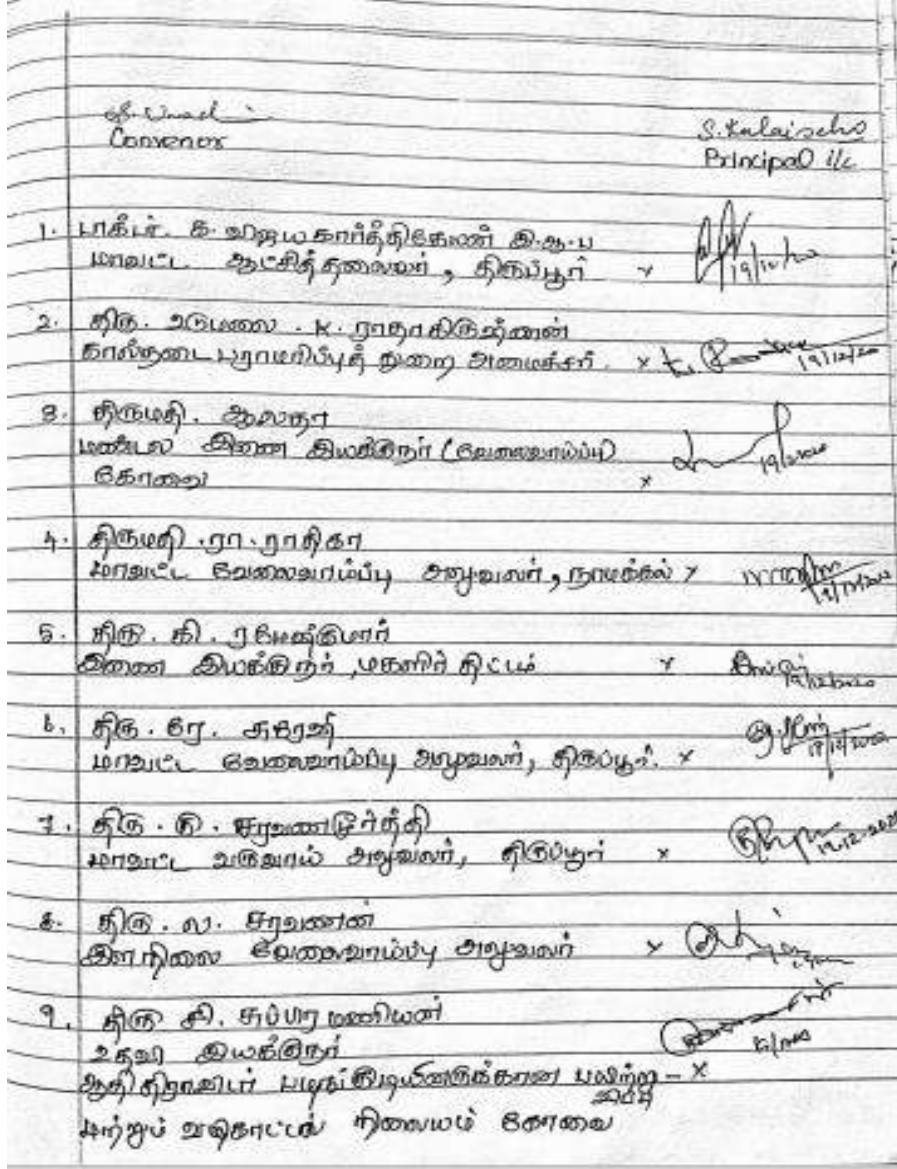 Convenor
S. Kalaiselvi
Principal i/c
1. டாக்டர். க. விஜய கார்த்திகேயன் இ.ஆ.ப
மாவட்ட ஆட்சித்தலைவர், திருப்பூர் x 19/12/20
2. திரு. உடுமலை . K. ராதாகிருஷ்ணன்
கால்நடை பராமரிப்புத் துறை அமைச்சர். x 19/12/20
3. திருமதி. ஆ.லதா
மண்டல இணை இயக்குநர் (வேலைவாய்ப்பு) 19/12/2020
கோவை x
4. திருமதி .ரா. ராதிகா
மாவட்ட வேலைவாய்ப்பு அலுவலர், நாமக்கல் x 19/12/2020
5. திரு. கி. ரமேஷ்குமார்
இணை இயக்குநர், மகளிர் திட்டம் x 19/12/2020
6. திரு. ரே. சுரேஷ்
மாவட்ட வேலைவாய்ப்பு அலுவலர், திருப்பூர். x 19/12/2020
7. திரு. கு. சரவணமூர்த்தி
மாவட்ட வருவாய் அலுவலர், திருப்பூர் x 19.12.2020
8. திரு. ல. சரவணன்
இளநிலை வேலைவாய்ப்பு அலுவலர் x
9. திரு கி. சுப்பிரமணியன்
உதவி இயக்குநர்
ஆதி திராவிடர் பழங்குடியினருக்கான பயிற்சி – x
மற்றும் வழிகாட்டல் நிலையம் கோவை